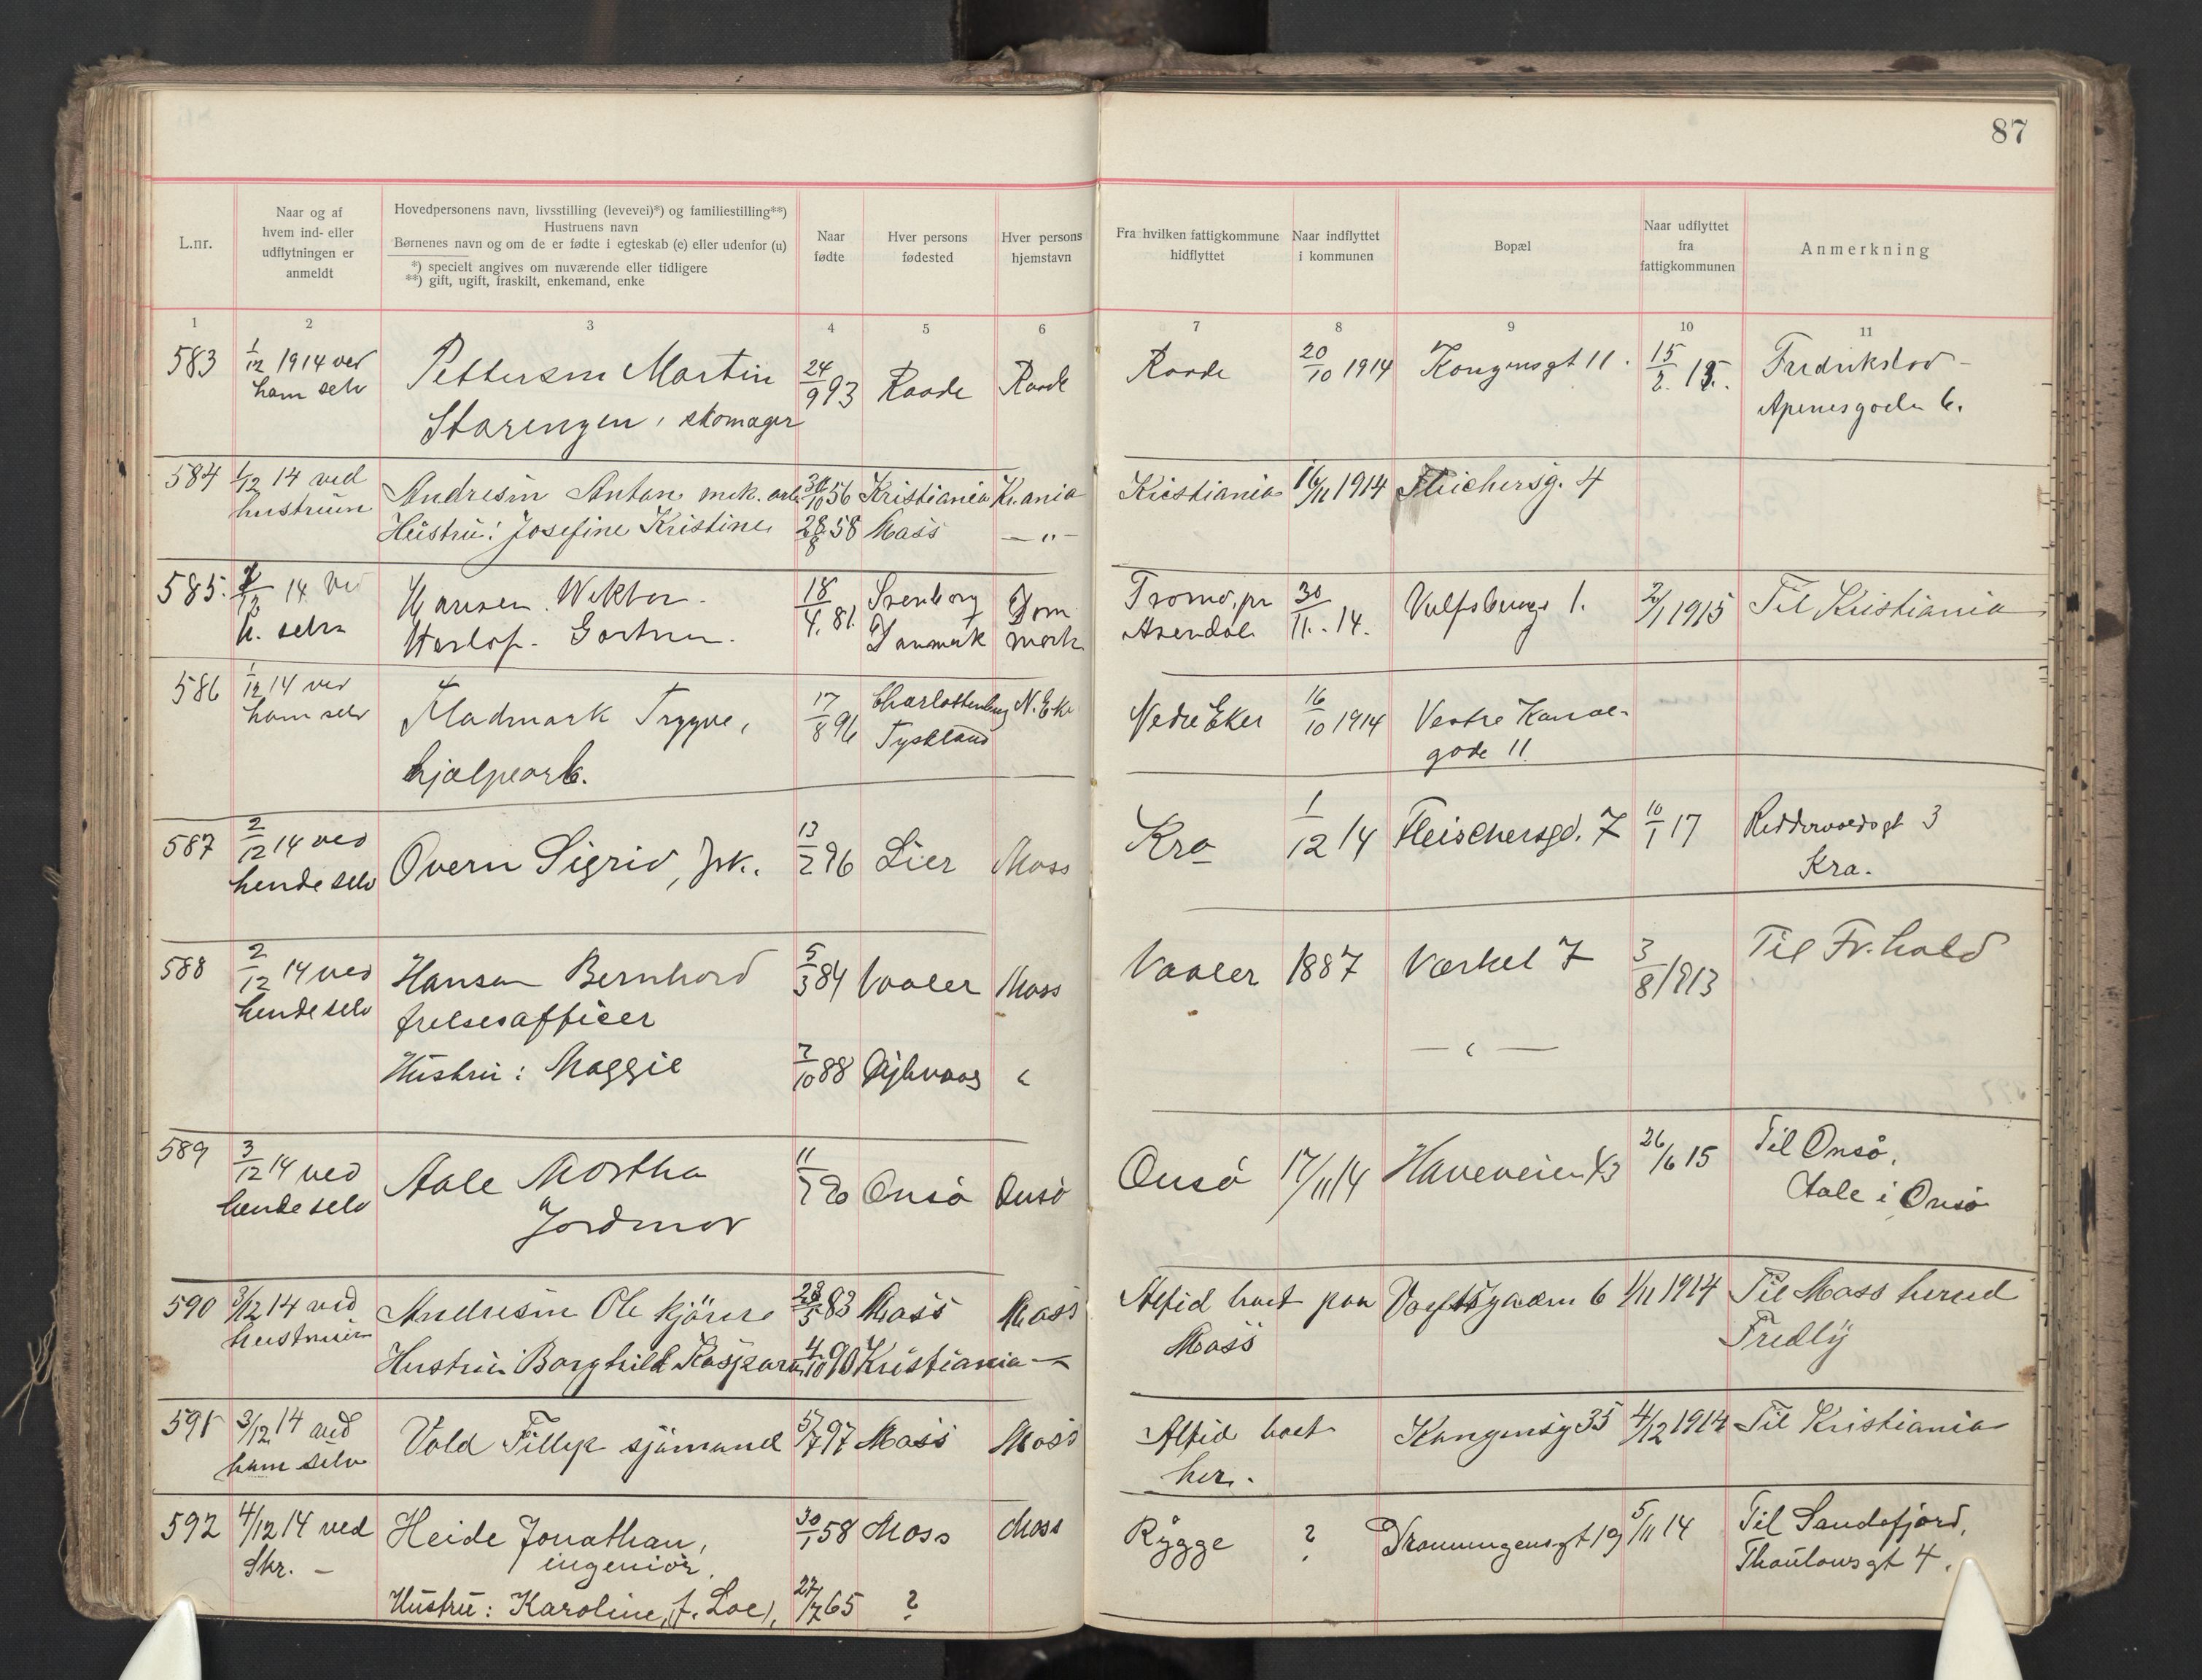 87
L.nr.
Naar og af
hvem ind- eller
udflytningen er
anmeldt
Hovedpersonens navn, livsstilling (levevei)*) og familiestilling**)
Hustruens navn
Børnenes navn og om de er fødte i egteskab (e) eller udenfor (u)
*) specielt angives om nuværende eller tidligere
**) gift, ugift, fraskilt, enkemand, enke
Naar
fødte
Hver persons
fødested
Hver persons
hjemstavn
Fra hvilken fattigkommune
hidflyttet
Naar indflyttet
i kommunen
Bopæl
Naar udflyttet
fra
fattigkommunen
Anmerkning
1 2 3 4 5 6 7 8 9 10 11
583 1/12 1914 ved Pettersen Martin 24/9 93 Raade Raade Raade 20/10 1914 Kongensgt 11. 15/2. 15. Fredrikstad -
ham selv Starengen, skomager Apenesgaden 6.
584 1/12 14 ved Andresen Anton mek. arb. 56 Kristiania Kr.ania Kristiania 16/11 1914 Fleichersg. 4
hustruen Hustru: Josefine Kristine 28/8 58 Moss — " —
585. 14 ved Hansen Wiktor 18/4. 81. Svenborg Dan Tromø, pr 30/11. 14. Vulfsbergs 1. 2/1 1915 Til Kristiania
h. selv Gartner. Danmark mark Arendal
586 1/12 14 ved Trygve, 17/8 96 Charlottenburg N. Eker Nedre Eker 16/10 1914 Vestre Kanal-
ham selv hjælpearb. Tyskland gade 11
587 2/12 14 ved Overn Sigrid, frk. 13/2 96 Lier Moss Kra 1/12 14 Fleischersgd. 7 10/1 17 Riddervoldsgt 3
hende selv Kra.
588 2/12 14 ved Hansen Bernhard 5/3 84 Vaaler Moss Vaaler 1887 Værket 7 3/8 1913 Til Fr.hald
hende selv frelsesofficer
Hustru: Maggie 7/10 88 "
589 3/12 14 ved Aale Martha 11/7 90 Onsø Onsø Onsø 17/11 14 Haveveien 26/6 15 Til Onsø,
hende selv Jordmor Aale i Onsø
590 3/12 14 ved Andresen Ole kjører 83 Moss Moss Altid boet paa 6 1/11 1914 Til Moss herred
hustruen Moss Fredly
Hustru Borghild 4/10 90 Kristiania —"—
591 3/12 14 ved Vold Fillip sjømand 5/7 97 Moss Moss Altid boet Kongensg 35 4/12 1914 Til Kristiania
ham selv her.
592 4/12 14 ved Heide Jonathan, 30/1 58 Moss Moss Rygge ? Dronningensgt 19 5/11 14 Til Sandefjord,
Skr. — ingeniør, Thaulowsgt 4.
Hustru: Karoline, (f. Loe), 27/7 65 ?